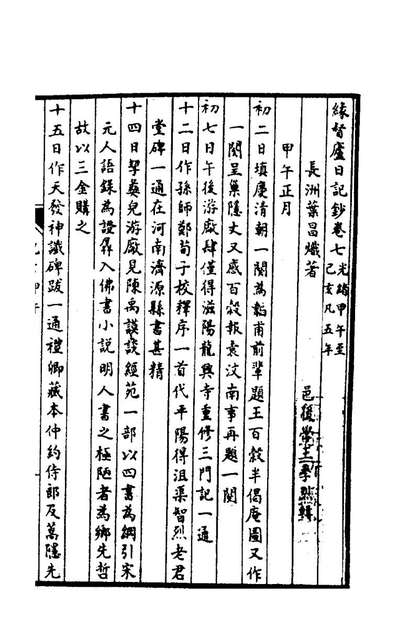 緣督廬日記鈔卷七 光緒甲午至己亥凡五年
長洲葉昌熾著 邑後學王季烈輯
甲午正月
初二日填慶清朝一闋為韜甫前輩題王百穀半偈庵圖又作
一闋呈巢隱丈又感百穀報袁汶南事再題一闋
初七日午後游廠肆僅得滋陽龍興寺重修三門記一通
十二日作孫師鄭荀子校釋序一首代平陽得沮渠智烈老君
堂碑一通在河南濟源縣書甚精
十四日挈彝兒游廠見陳禹謨談經苑一部以四書為綱引宋
元人語錄為證羼入佛書小說明人書之極陋者為鄉先哲
故以三金購之
十五日作天發神讖碑跋一通禮卿藏本仲約侍郎及萬隱先